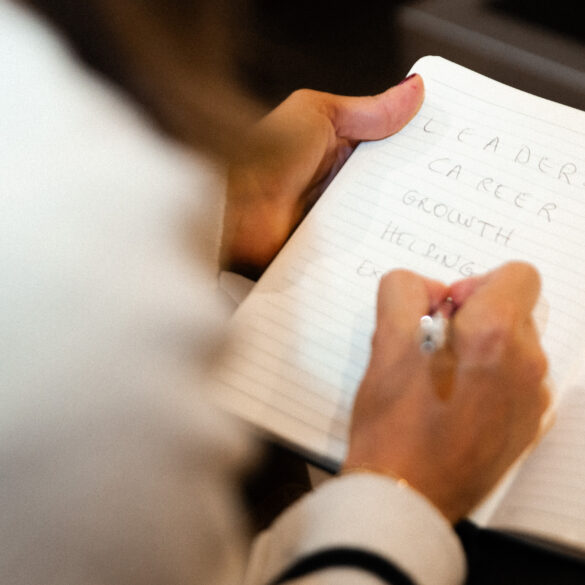 LEADER
CAREER
GROWTH
HELPING
EX